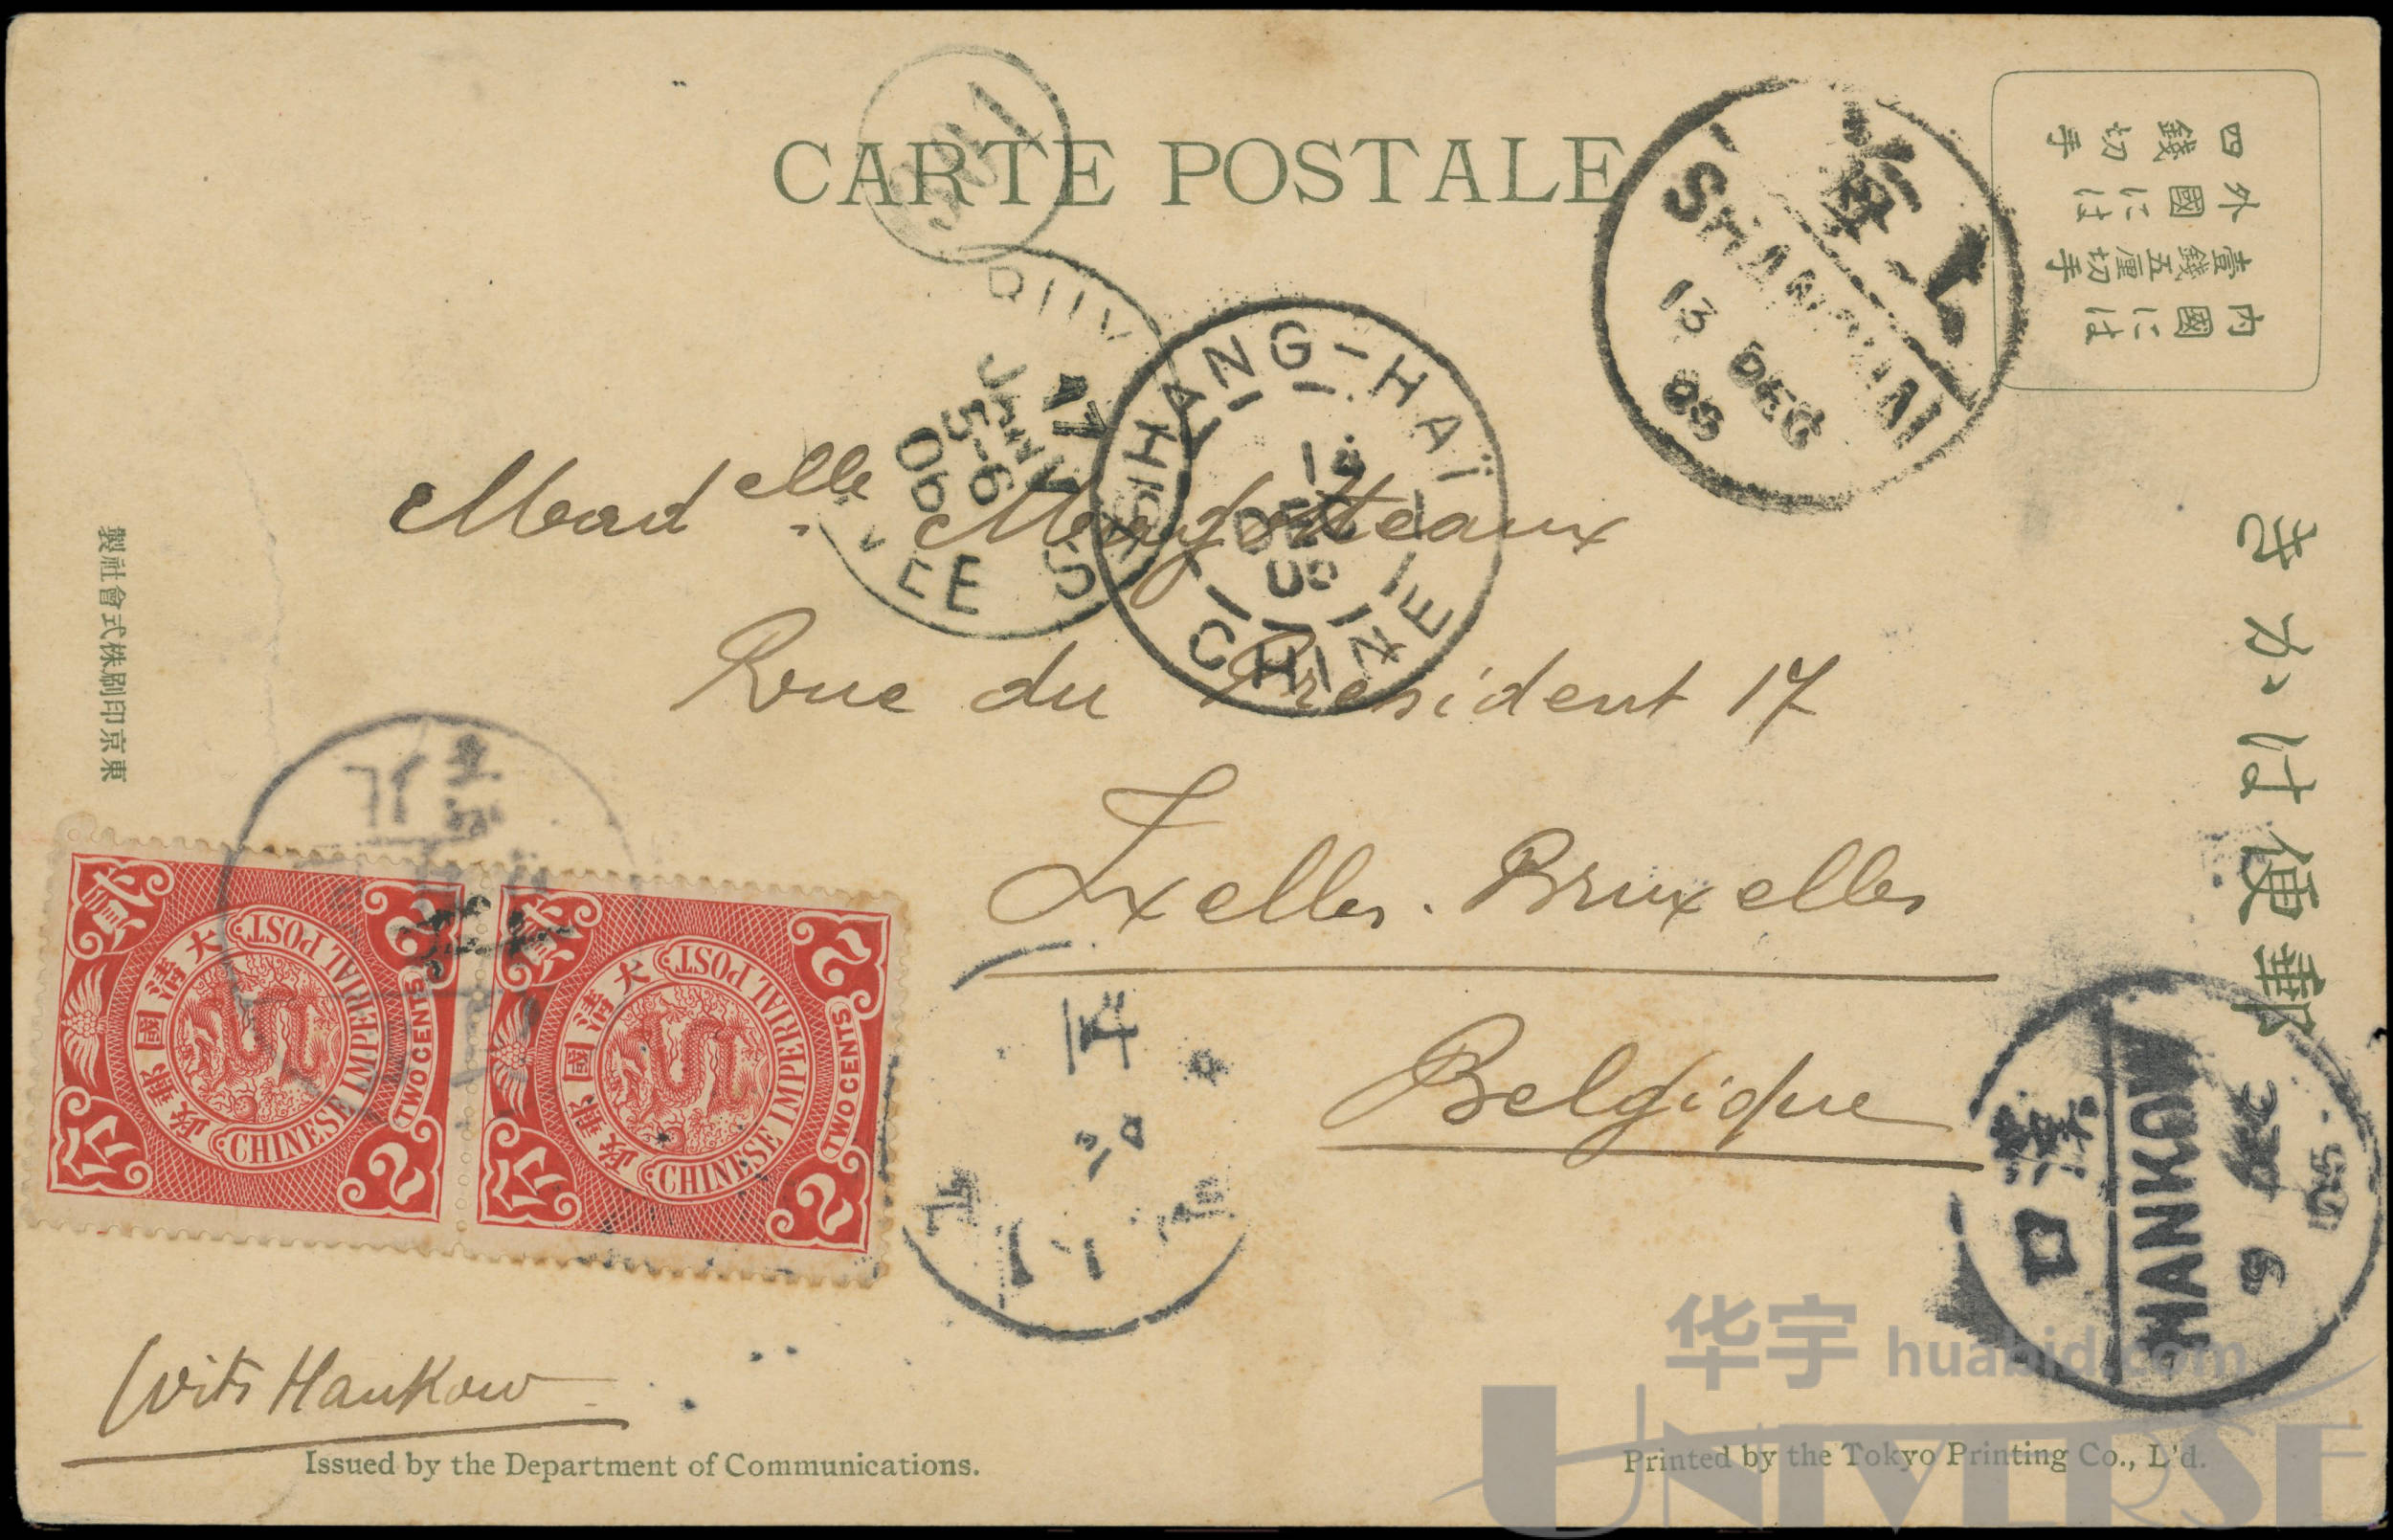 CARTE POSTALE
四錢切手
外國には
壹錢五厘切手
內國には
郵便はかき
上海
SHANGHAI
13 DEC
05
SHANG-HAÏ
DEC
05
CHINE
17
JANV
5-6
06
Mad elle
Rue du President 17
Ixelles. Bruxelles
Belgique
東京印刷株式會社製
大清國郵政
CHINESE IMPERIAL POST
TWO CENTS
貳分
2
2
大清國郵政
CHINESE IMPERIAL POST
TWO CENTS
貳分
2
2
漢口
HANKOW
9 DEC
05
Hankow
Issued by the Department of Communications.
Printed by the Tokyo Printing Co., L'd.
华宇 huabid.com
UNIVERSE